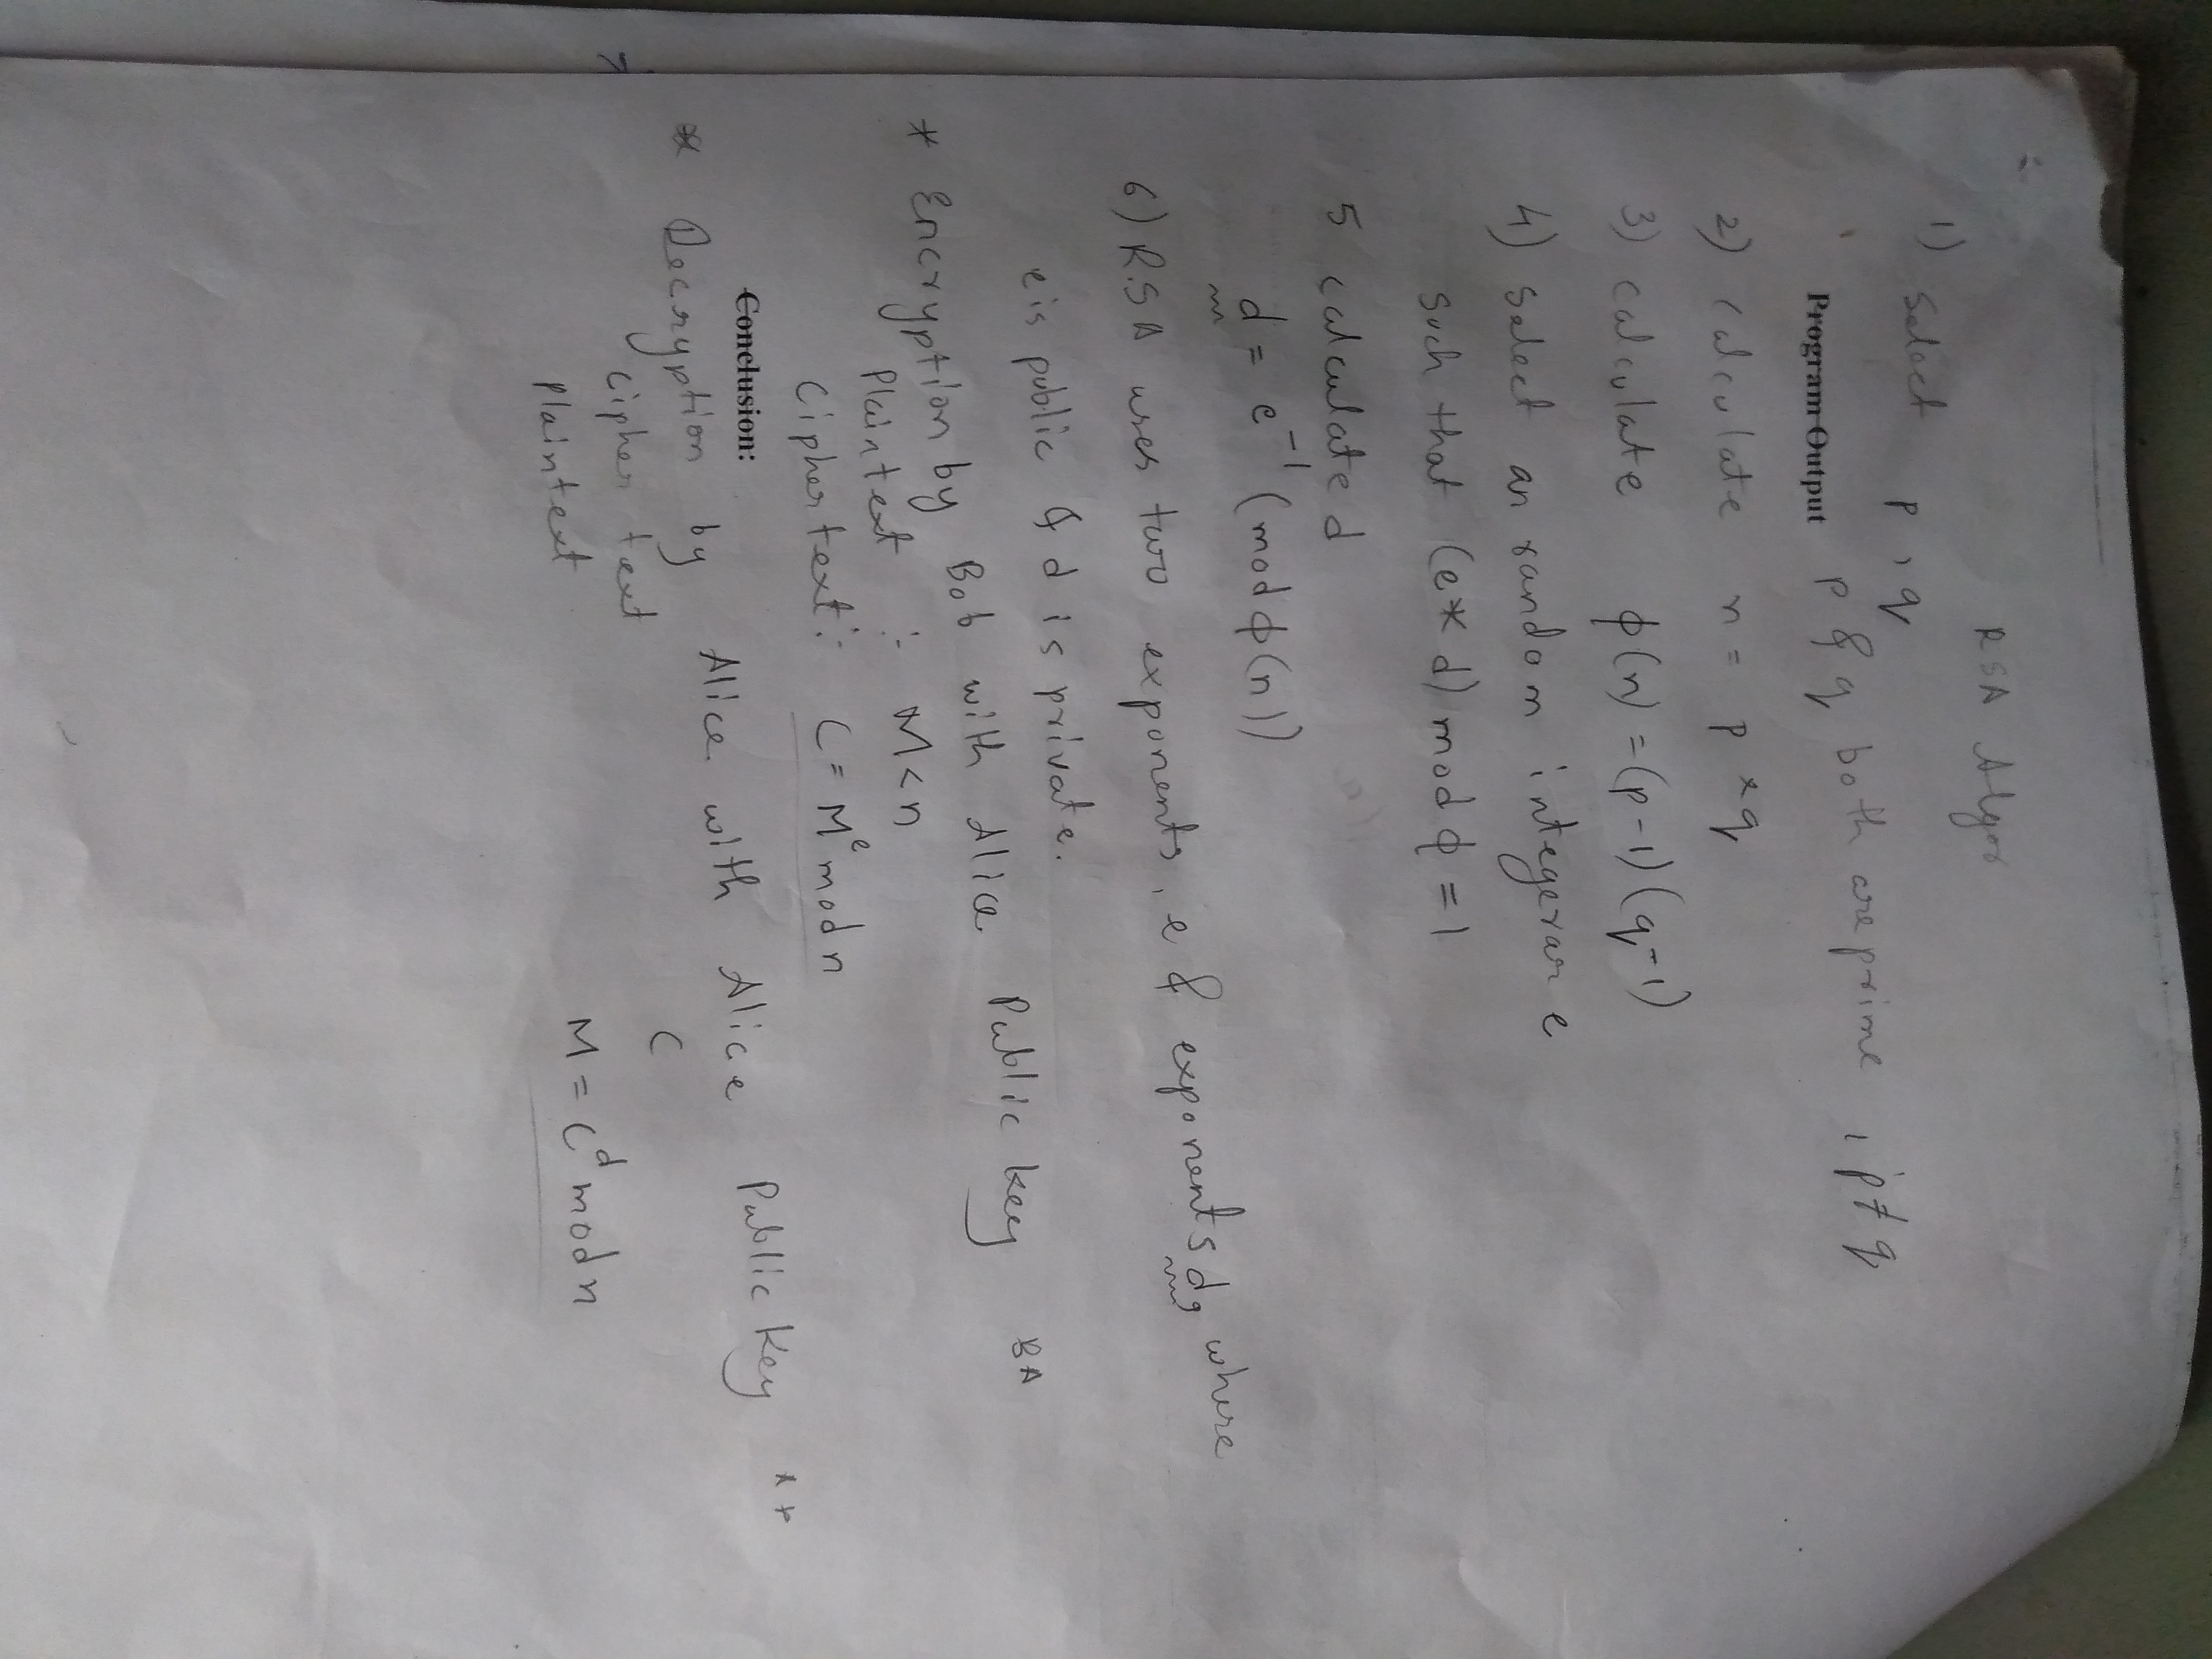 RSA Algor
1) Select p , q
p & q both are prime , p ≠ q
Program Output
2) calculate n = p * q
3) calculate ϕ(n) = (p-1) (q-1)
4) Select an random integerar e
Such that (e* d) mod ϕ = 1
5 calculate d
d = e⁻¹ (mod ϕ(n))
6) R.S A uses two exponents, e & exponents d, where
e is public & d is private.
* Encryption by Bob with Alice Public key BA
Plaintext : M < n
Ciphertext : C = Mᵉ mod n
Conclusion:
* Decryption by Alice with Alice Public Key
Cipher text C
Plaintext M = Cᵈ mod n